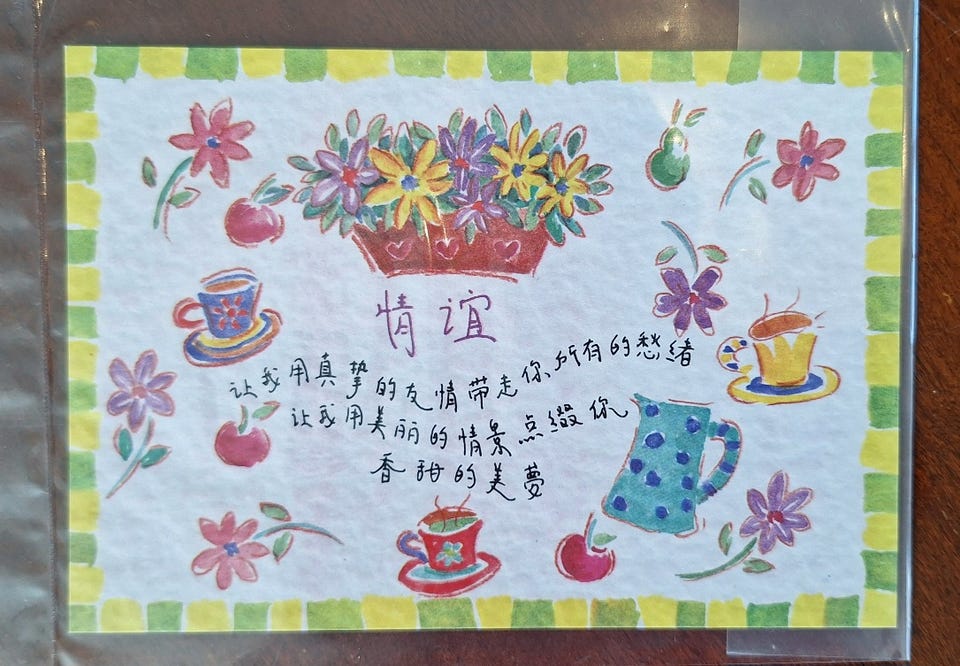 情谊
让我用真挚的友情带走你所有的愁绪
让我用美丽的情景点缀你
香甜的美夢